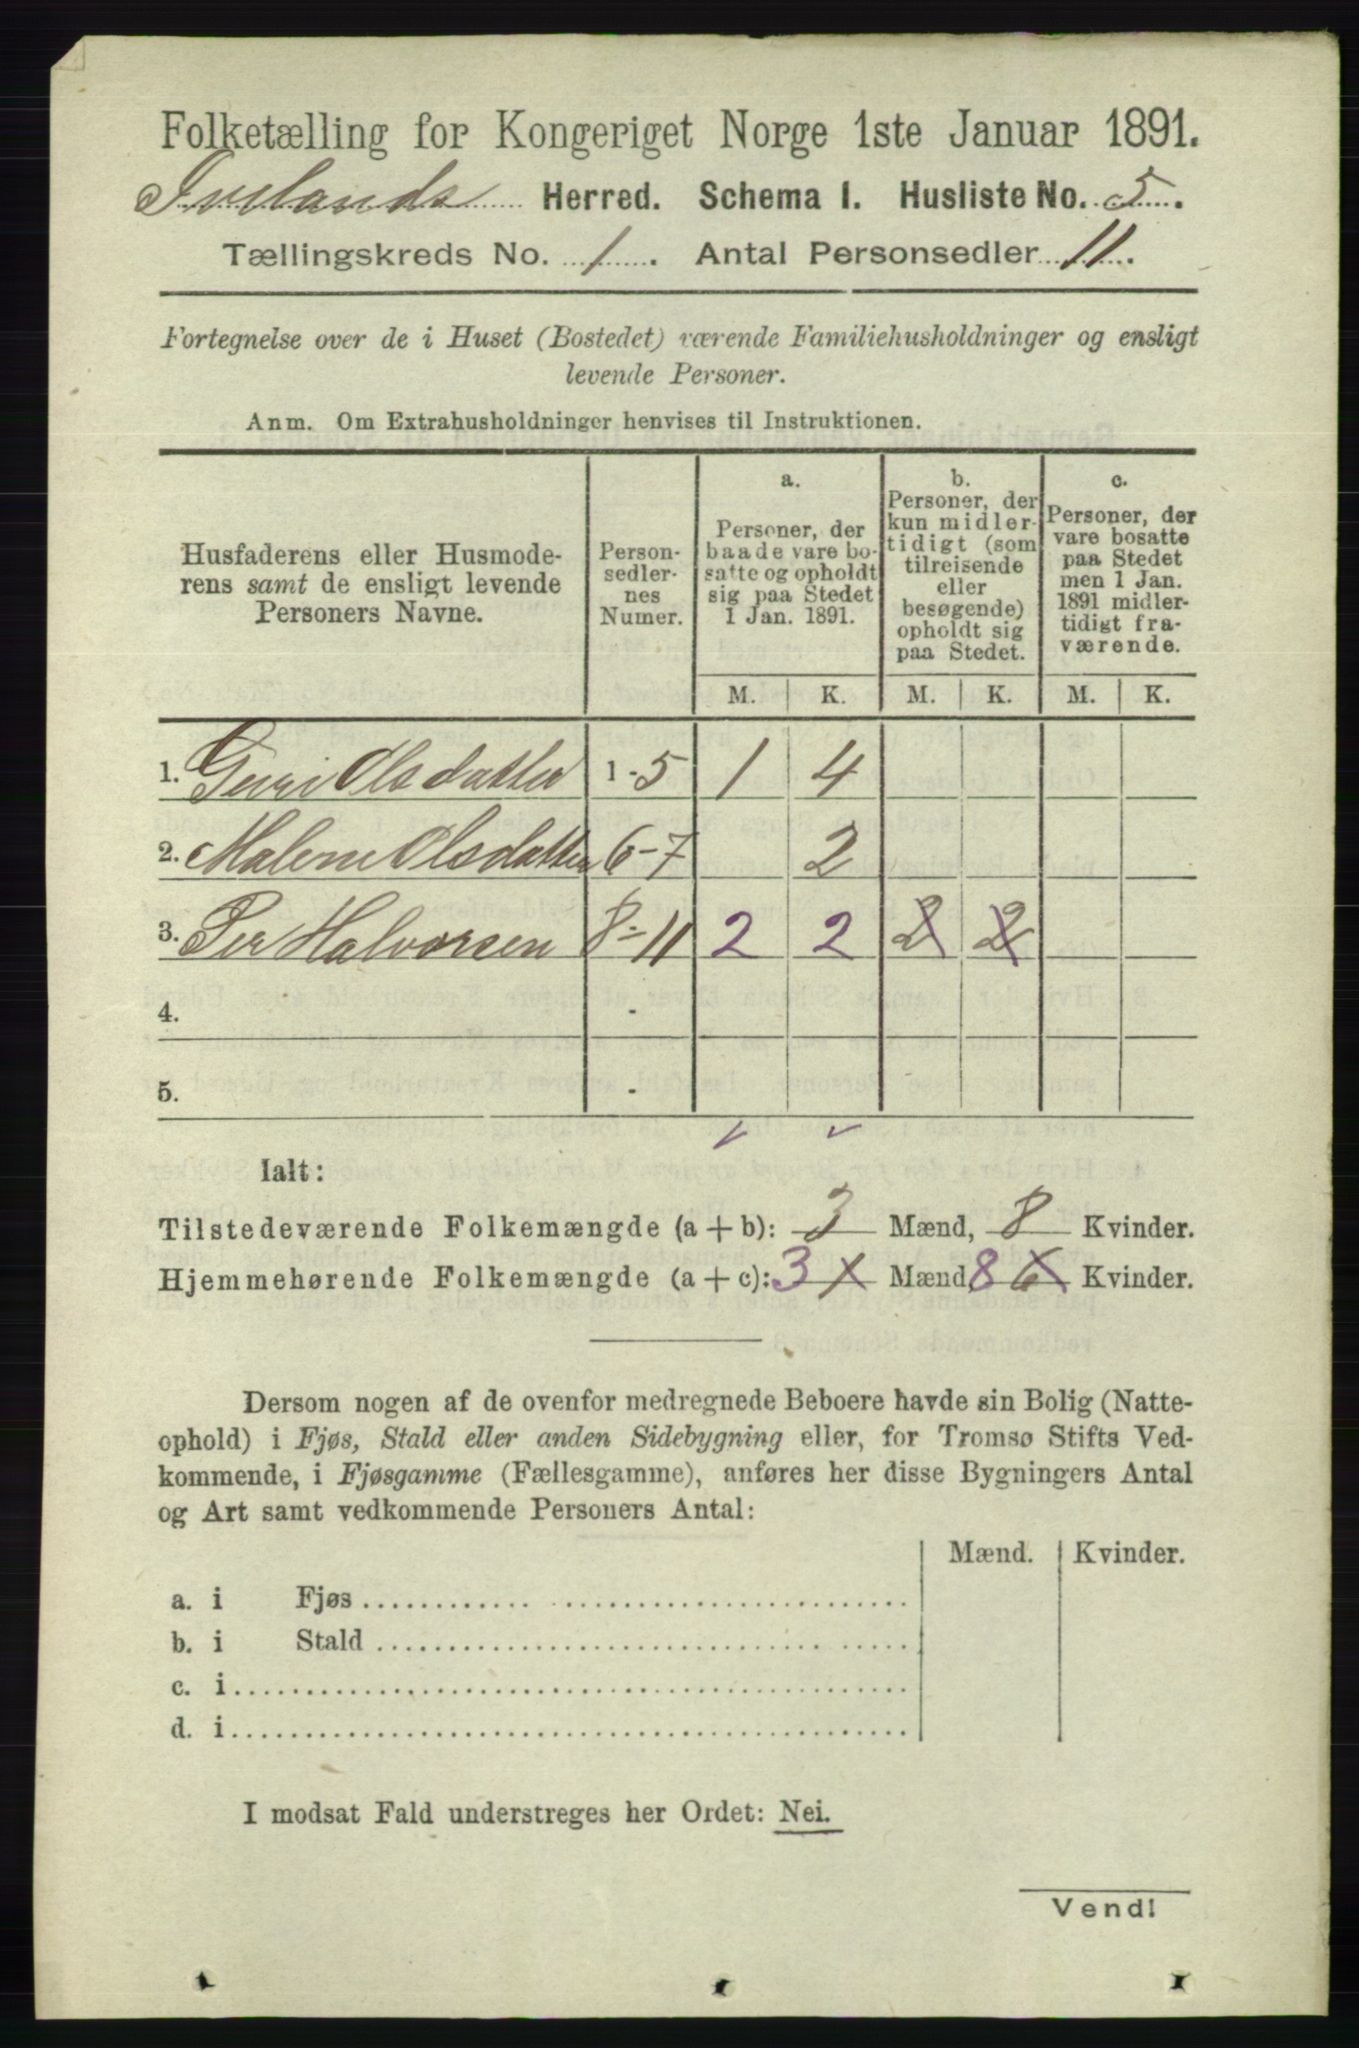 Folketælling for Kongeriget Norge 1ste Januar 1891.
Ivelands Herred. Schema I. Husliste No. 5.
Tællingskreds No. 1. Antal Personsedler 11.
Fortegnelse over de i Huset (Bostedet) værende Familiehusholdninger og ensligt
levende Personer.
Anm. Om Extrahusholdninger henvises til Instruktionen.
Husfaderens eller Husmode-
rens samt de ensligt levende
Personers Navne.
Person-
sedler-
nes
Numer.
a.
Personer, der
baade vare bo-
satte og opholdt
sig paa Stedet
1 Jan. 1891.
b.
Personer, der
kun midler-
tidigt (som
tilreisende
eller
besøgende)
opholdt sig
paa Stedet.
c.
Personer, der
vare bosatte
paa Stedet
men 1 Jan.
1891 midler-
tidigt fra-
værende.
M. K. M. K. M. K.
1. Guri Olsdatter 1-5 1 4
2. Malene Olsdatter 6-7 2
3. Per Halvorsen 8-11 2 2 2 2
4. -
5. -
Ialt:
Tilstedeværende Folkemængde (a + b): 3 Mænd, 8 Kvinder.
Hjemmehørende Folkemængde (a + c): 3 1 Mænd, 8 6 Kvinder.
Dersom nogen af de ovenfor medregnede Beboere havde sin Bolig (Natte-
ophold) i Fjøs, Stald eller anden Sidebygning eller, for Tromsø Stifts Ved-
kommende, i Fjøsgamme (Fællesgamme), anføres her disse Bygningers Antal
og Art samt vedkommende Personers Antal:
Mænd. Kvinder.
a. i Fjøs
b. i Stald
c. i
d. i
I modsat Fald understreges her Ordet: Nei.
Vend!